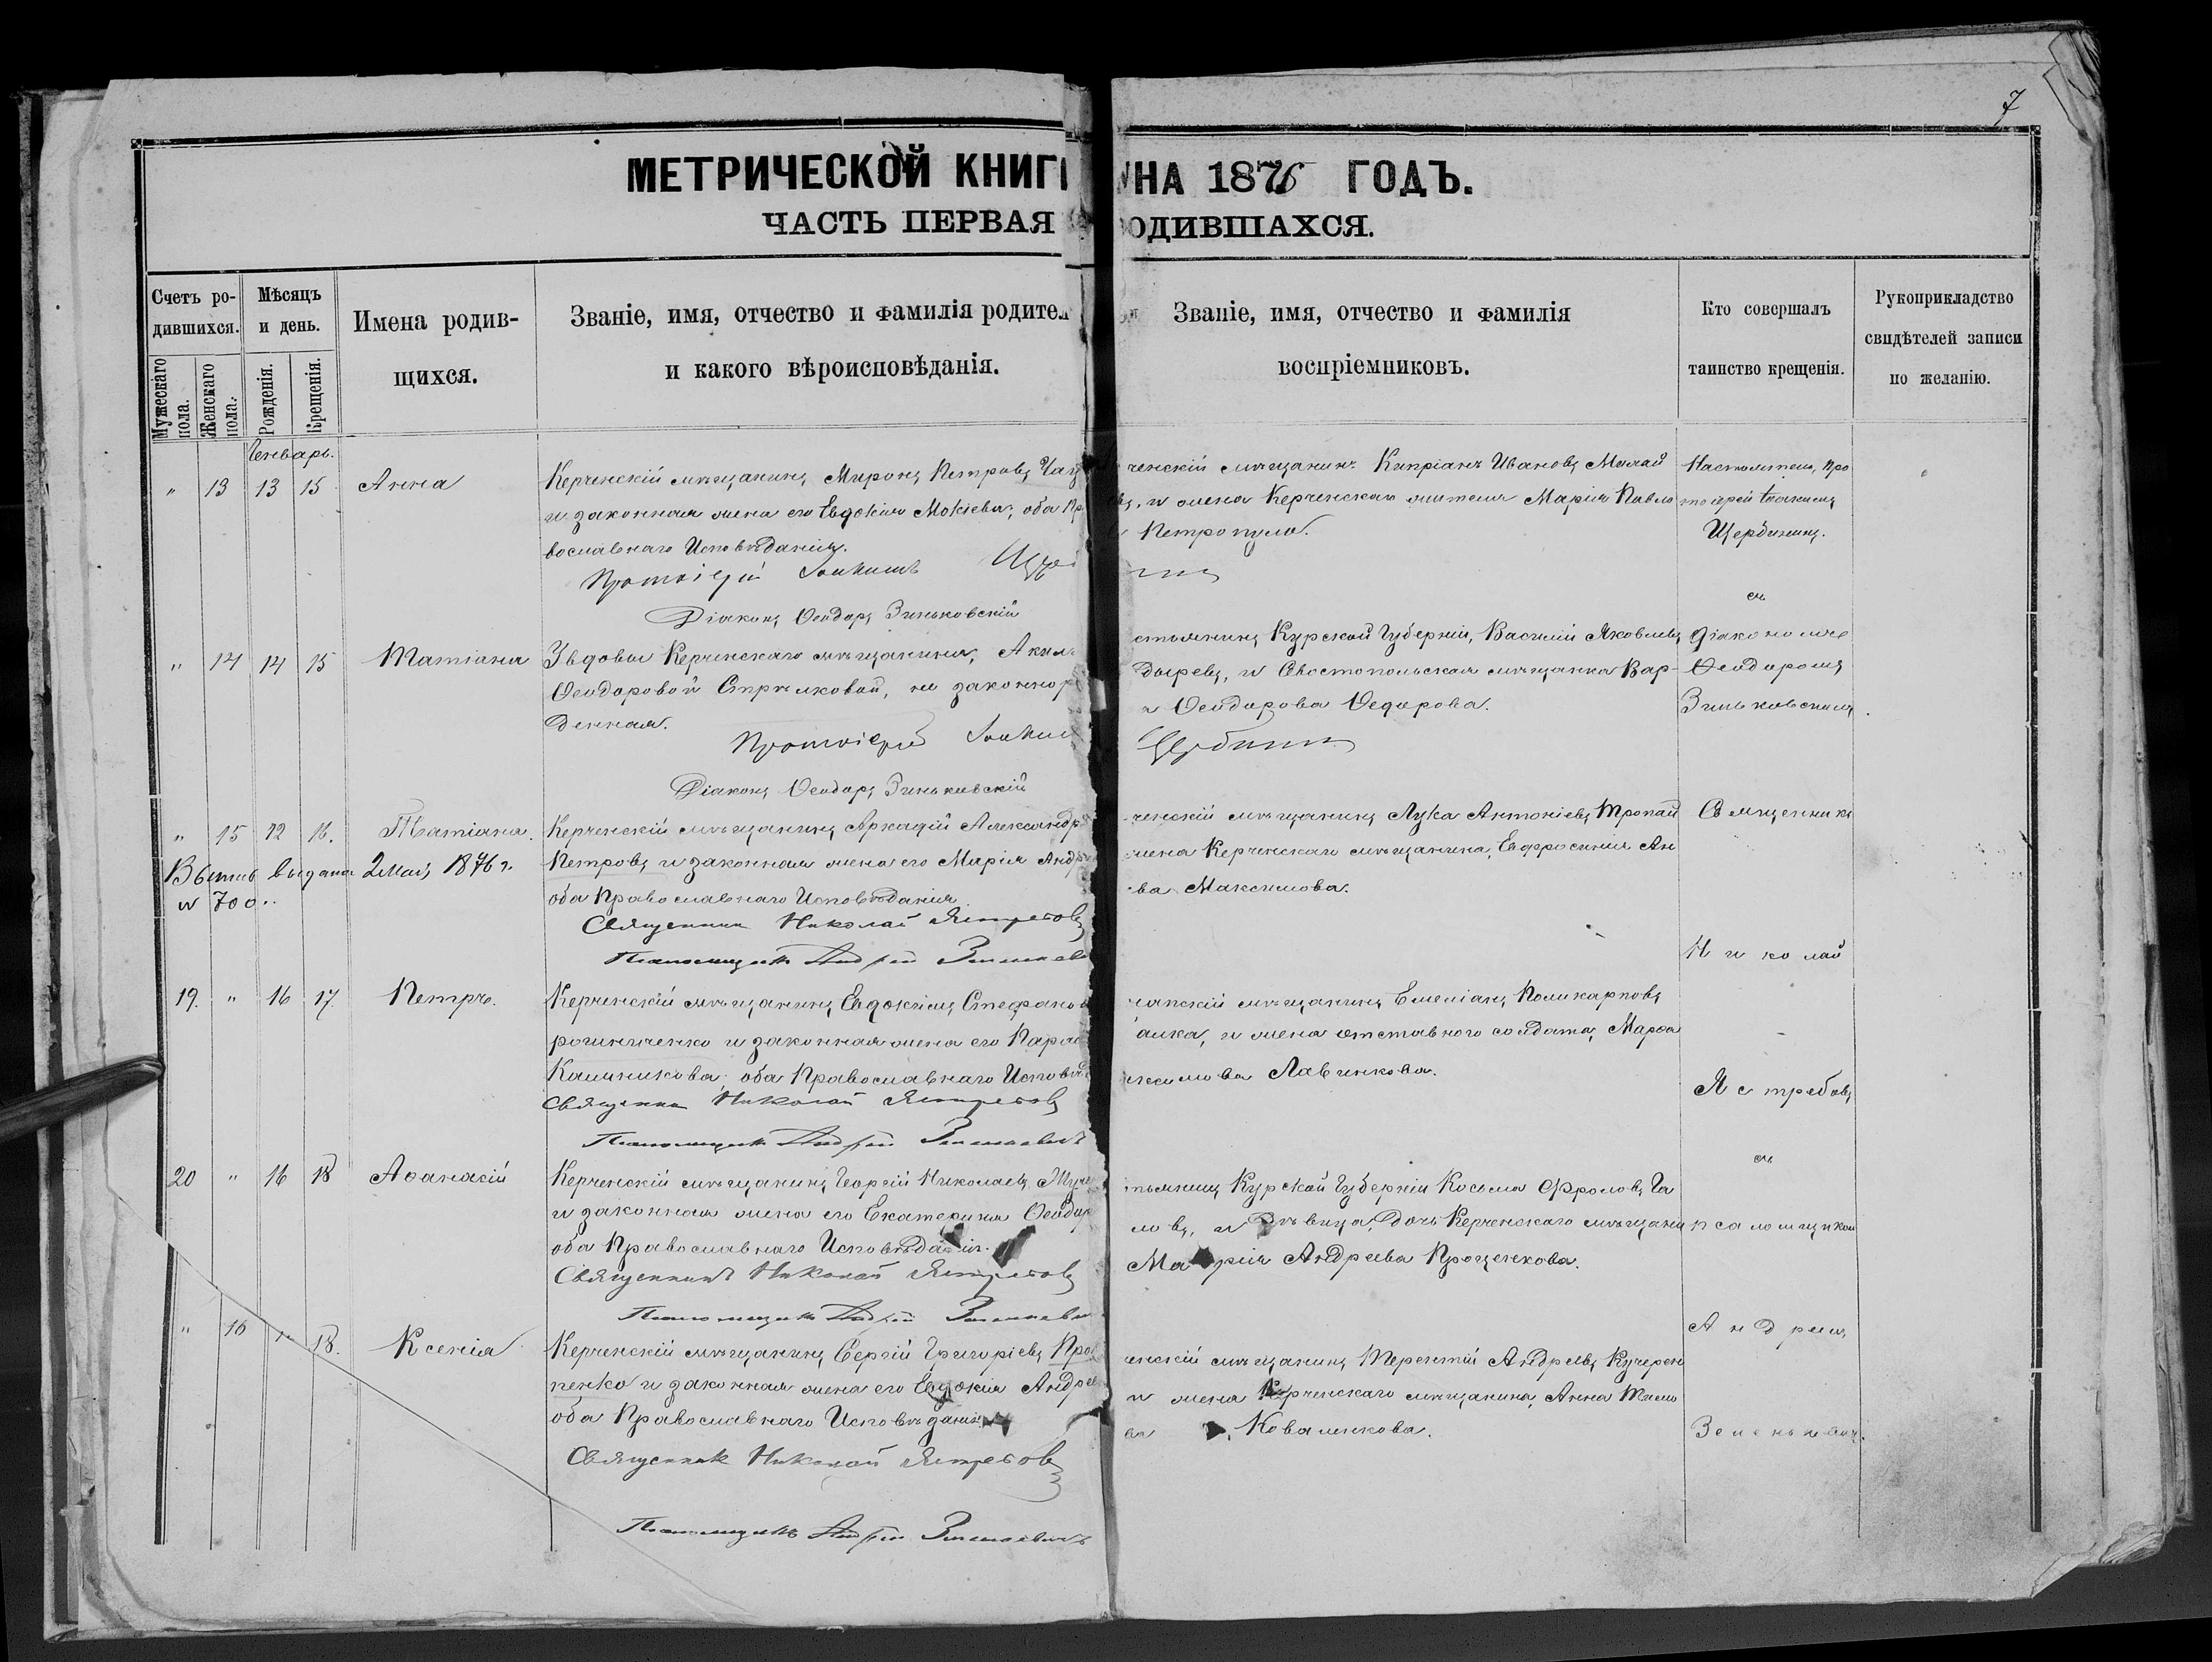 7
МЕТРИЧЕСКОЙ КНИГИ НА 1876 ГОДЪ.
ЧАСТЬ ПЕРВАЯ ОДИВШАХСЯ.
Счетъ ро-
дившихся.
Мужескаго пола.
Женскаго пола.
Мѣсяцъ
и день.
Рожденія.
Крещенія.
Имена родив-
щихся.
Званіе, имя, отчество и фамилія родител
и какого вѣроисповѣданія.
Званіе, имя, отчество и фамилія
воспріемниковъ.
Кто совершалъ
таинство крещенія.
Рукоприкладство
свидѣтелей записи
по желанію.
Генварь.
" 13 13 15 Анна
Керченскій мѣщанинъ Миронъ Петровъ
и законная жена его Евдокія Мокіева, оба Пр
вославнаго Исповѣданія.
Протоіерей Іоакимъ
Діаконъ Ѳеодоръ Зиньковскій
ченскій мѣщанинъ Кипріанъ Ивановъ
въ, и жена Керченскаго жителя Марія Павло
Петропуло.
Настоятель, про
тоіерей Іоакимъ
Щербининъ.
съ
" 14 14 15 Татіана
Вдовы Керченскаго мѣщанина,
Ѳеодоровой Стрѣлковой, не законнор
денная.
Протоіерей
Щербининъ
Діаконъ Ѳеодоръ Зиньковскій
стьянинъ Курской Губерніи, Василій Яковлевъ
дыревъ, и Севостопольская мѣщанка Вар-
а Ѳеодорова Ѳедорова.
Діакономъ
Ѳеодоромъ
Зиньковскимъ.
" 15 12 16. Татіана.
Выпись выдана 2 Мая, 1876 г.
№ 700.
Керченскій мѣщанинъ Аркадій Александр
Петровъ и законная жена его Марія Андр
оба Православнаго Исповѣданія.
Священникъ Николай Ястребовъ
Псаломщикъ Андрей
ченскій мѣщанинъ Лука Антоніевъ
жена Керченскаго мѣщанина, Евфросинія Ан
ва Максимова.
Священникъ
Николай
19. " 16 17. Петръ.
Керченскій мѣщанинъ Евдокимъ Стефанов
и законная жена его Парас
Калиникова, оба Православнаго Исповѣд
Священникъ Николай Ястребовъ
Псаломщикъ Андрей Зеленкевичъ
мѣщанинъ Емеліанъ Поликарповъ
и жена отставного солдата, Марѳа
Лавченкова.
Ястребовъ
съ
20 " 16 18 Аѳанасій
Керченскій мѣщанинъ Георгій Николаевъ
и законная жена его Екатерина Ѳеодор
оба Православнаго Исповѣданія.
Священникъ Николай Ястребовъ
Псаломщикъ Андрей
стьянинъ Курской Губерніи Косьма Фроловъ
ловъ, и дѣвица, Дочь Керченскаго мѣщани
Марія Андреева Проценкова.
псаломщиком
" 16 18. Ксенія
Керченскій мѣщанинъ Сергій Григоріевъ
пенко и законная жена его Евдокія Андрее
оба Православнаго Исповѣданія
Священникъ Николай Ястребовъ
Псаломщикъ Андрей Зеленкевичъ
ченскій мѣщанинъ Терентій Андреевъ Кучерен
и жена Керченскаго мѣщанина, Анна Тимо
Коваленкова.
Андреемъ